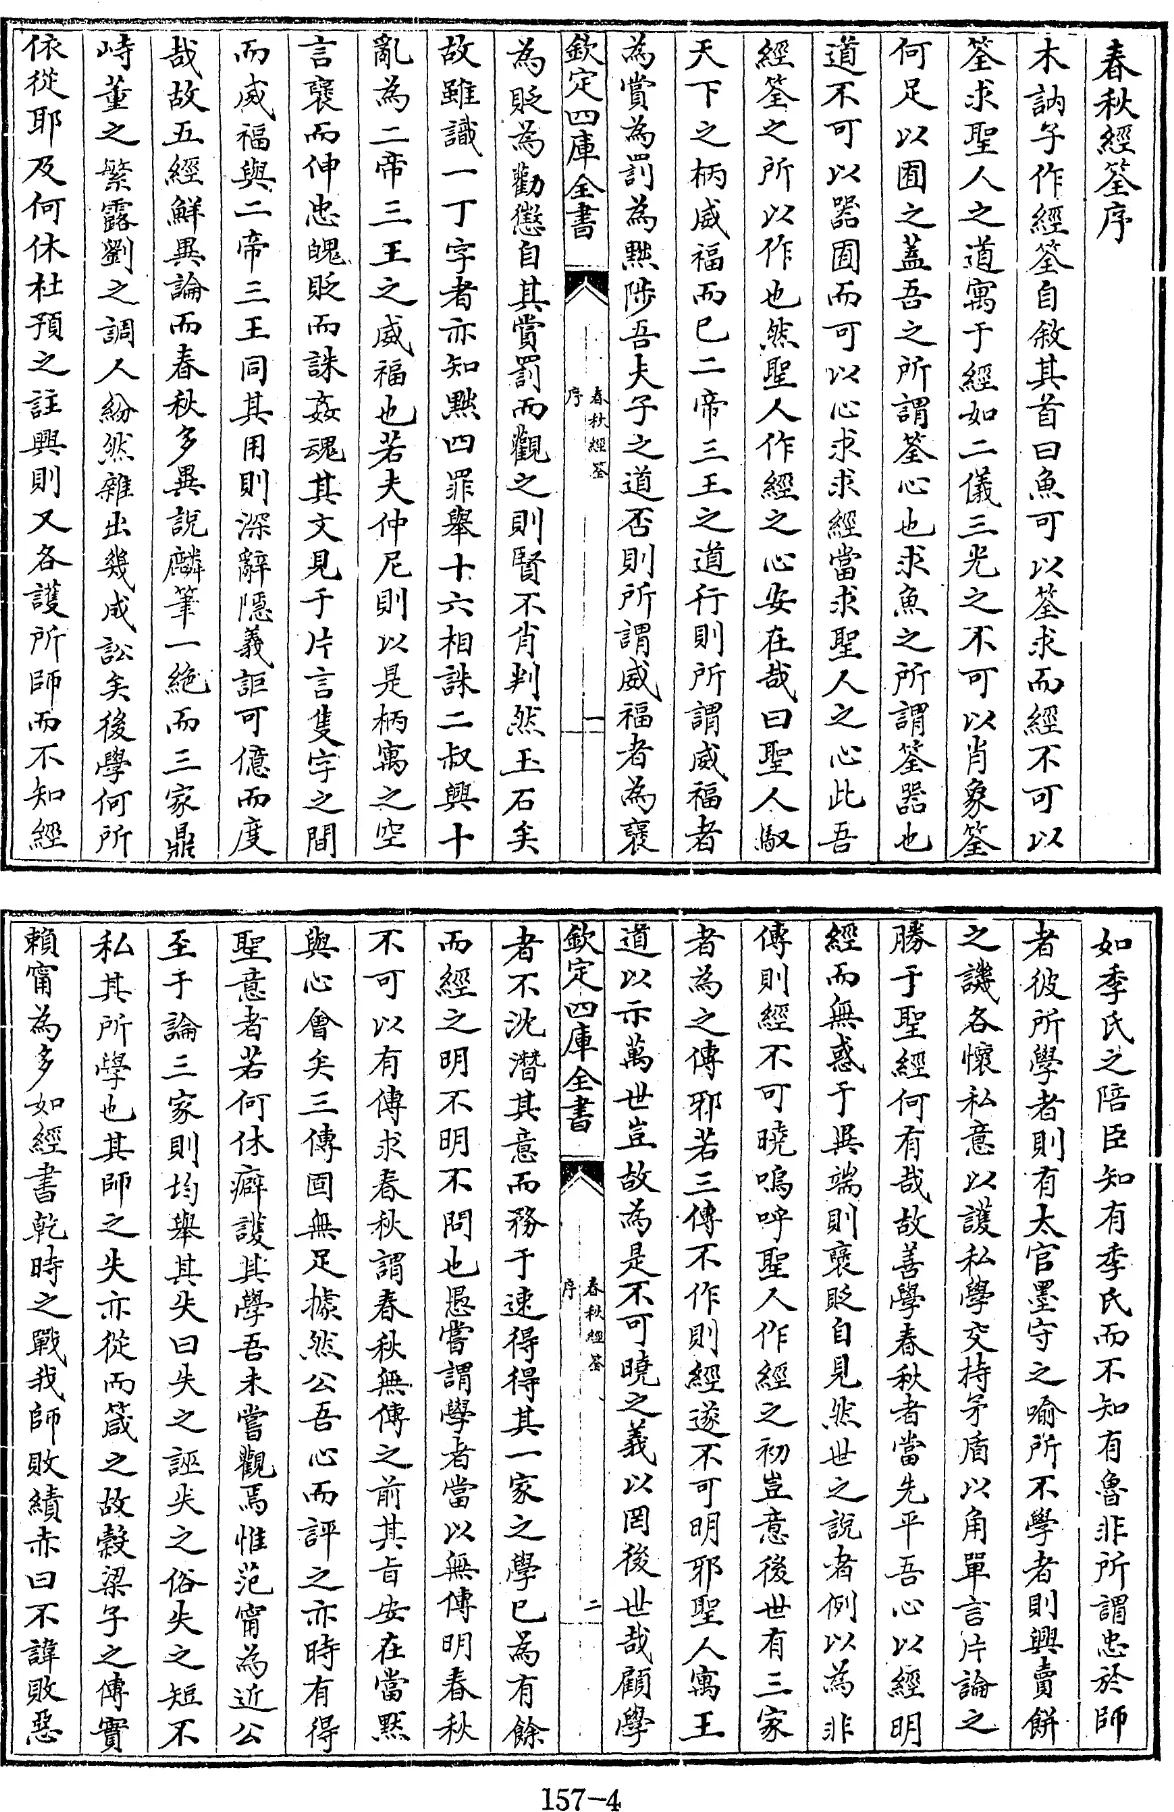 春秋經筌序
木訥子作經筌自敘其首曰魚可以筌求而經不可以
筌求聖人之道寓于經如二儀三光之不可以肖象筌
何足以囿之蓋吾之所謂筌心也求魚之所謂筌器也
道不可以器囿而可以心求求經當求聖人之心此吾
經筌之所以作也然聖人作經之心安在哉曰聖人馭
天下之柄威福而已二帝三王之道行則所謂威福者
為賞為罰為黜陟吾夫子之道否則所謂威福者為襃
欽定四庫全書
春秋經筌
序
一
為貶為勸懲自其賞罰而觀之則賢不肖判然玉石矣
故雖識一丁字者亦知黜四罪舉十六相誅二叔興十
亂為二帝三王之威福也若夫仲尼則以是柄寓之空
言襃而伸忠魄貶而誅姦魂其文見于片言隻字之間
而威福與二帝三王同其用則深辭隱義詎可億而度
哉故五經鮮異論而春秋多異說麟筆一絶而三家鼎
峙董之繁露劉之調人紛然雜出幾成訟矣後學何所
依從耶及何休杜預之註興則又各護所師而不知經
如季氏之陪臣知有季氏而不知有魯非所謂忠於師
者彼所學者則有太官墨守之喻所不學者則興賣餅
之譏各懷私意以護私學交持矛盾以角單言片論之
勝于聖經何有哉故善學春秋者當先平吾心以經明
經而無惑于異端則襃貶自見然世之說者例以為非
傳則經不可曉嗚呼聖人作經之初豈意後世有三家
者為之傳邪若三傳不作則經遂不可明邪聖人寓王
道以示萬世豈故為是不可曉之義以罔後世哉顧學
欽定四庫全書
春秋經筌
序
二
者不沈潛其意而務于速得得其一家之學已為有餘
而經之明不明不問也愚嘗謂學者當以無傳明春秋
不可以有傳求春秋謂春秋無傳之前其旨安在當黙
與心會矣三傳固無足據然公吾心而評之亦時有得
聖意者若何休癖護其學吾未嘗觀焉惟范甯為近公
至于論三家則均舉其失曰失之誣失之俗失之短不
私其所學也其師之失亦從而箴之故穀梁子之傳實
賴甯為多如經書乾時之戰我師敗績赤曰不諱敗惡
157-4